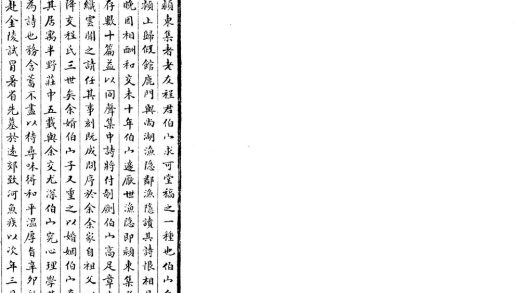 潁東集者老友程君伯山求可堂稿之一種也伯山
潁上歸假館鹿門與尚湖漁隱鄰漁隱讀其詩恨相見
晚因相酬和交未十年伯山遽厭世漁隱即潁東集
存數十篇益以同聲集中詩將付剞劂伯山高足章
纖雲聞之請任其事刻既成問序於余余家自祖父
降交程氏三世矣余婿伯山子又重之以婚姻伯山
其居寓半野莊中五載與余交尤深伯山究心理學
為詩也務含蓄不盡以待尋味得和平溫厚旨辛卯
赴金陵試冒暑省先墓於遠郊致河魚疾以次年三